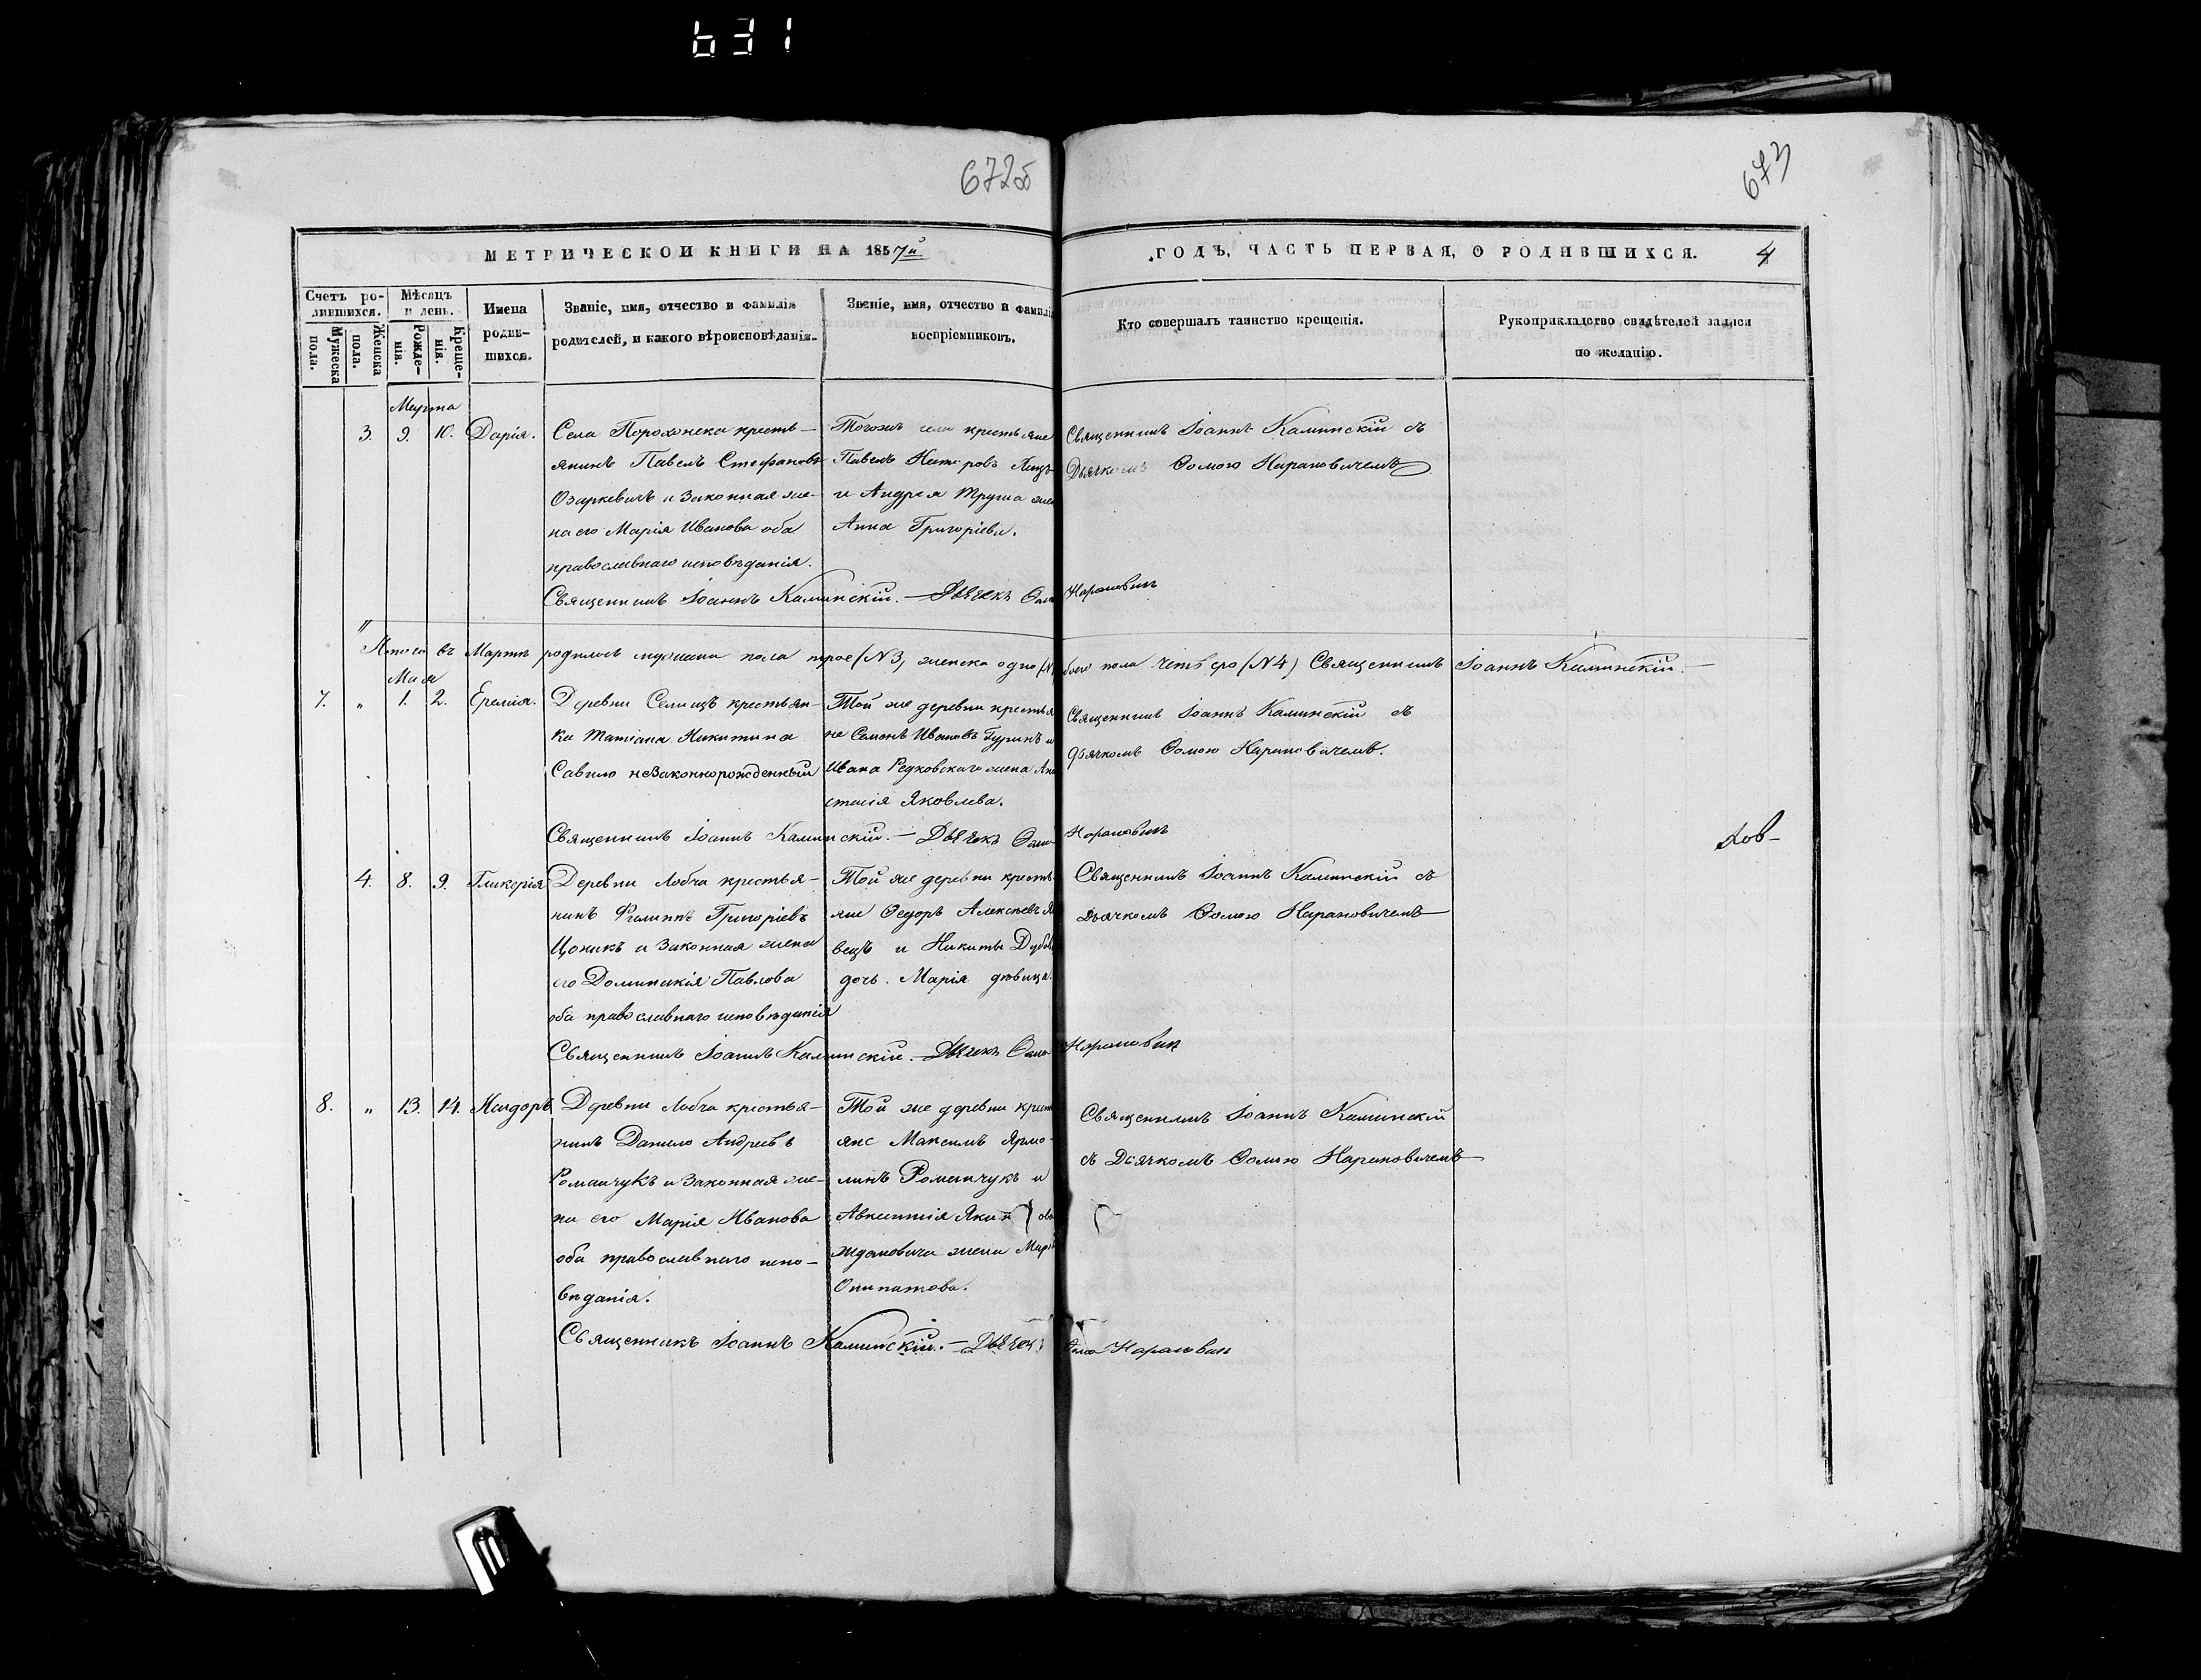 631
672об
673
МЕТРИЧЕСКОЙ КНИГИ НА 1857й
ГОДЪ, ЧАСТЬ ПЕРВАЯ, О РОДИВШИХСЯ. 4
Счетъ родившихся.
Мужеска пола.
Женска пола.
Мѣсяцъ и день.
Рожденія.
Крещенія.
Имена родившихся.
Званіе, имя, отчество и фамилія
родителей, и какого вѣроисповѣданія.
Званіе, имя, отчество и фамилія
воспріемниковъ.
Кто совершалъ таинство крещенія.
Рукоприкладство свидѣтелей записи
по желанію.
Марта
3. 9. 10. Дарія.
Села Порохонска кресть-
янинъ Павелъ Стефановъ
Озаркевичъ и законная же-
на его Марія Иванова оба
православнаго исповѣданія.
Тогожъ села крестьяне
Павелъ
и Андрея Труша жена
Анна Григоріева.
Священникъ Іоаннъ Каминскій съ
Дьячкомъ Ѳомою Нарановичемъ
Священникъ Іоаннъ Каминскій. — Дьячекъ Ѳома Нарановичъ
Итого въ Мартѣ родилось мужеска пола трое (№3) женска одно обоего пола четверо (№4) Священникъ Іоаннъ Каминскій. —
Мая
7. „ 1. 2. Еремія.
Деревни Селищъ крестьян-
ка Татіана Никитина
Савило незаконнорожденный
Той же деревни крестья
не Семенъ Ивановъ Гуринъ и
Ивана Редковскаго жена Ана
стасія Яковлева.
Священникъ Іоаннъ Каминскій съ
дьячкомъ Ѳомою Нарановичемъ.
Священникъ Іоаннъ Каминскій. — Дьячекъ Ѳома Нарановичъ
4. 8. 9. Гликерія
Деревни Лобча крестья-
нинъ Филиппъ Григоріевъ
Цоникъ и законная жена
его Доминикія Павлова
оба православнаго исповѣданія
Той же деревни кресть
яне Ѳедоръ Алексѣевъ
вецъ и Никиты
дочь Марія дѣвица.
Священникъ Іоаннъ Каминскій съ
Дьячкомъ Ѳомою Нарановичемъ
Священникъ Іоаннъ Каминскій. — Дьячекъ Ѳома Нарановичъ
8. „ 13. 14. Исидоръ
Деревни Лобча крестья-
нинъ Данило Андреевъ
Романчукъ и законная же-
на его Марія Иванова
оба православнаго испо-
вѣданія.
Той же деревни крест
яне Максимъ Ярмо-
линъ Романчукъ и
Авксентія
Ждановича жена Марія
Священникъ Іоаннъ Каминскій
съ Дьячкомъ Ѳомою Нарановичемъ
Священникъ Іоаннъ Каминскій. — Дьячекъ Ѳома Нарановичъ